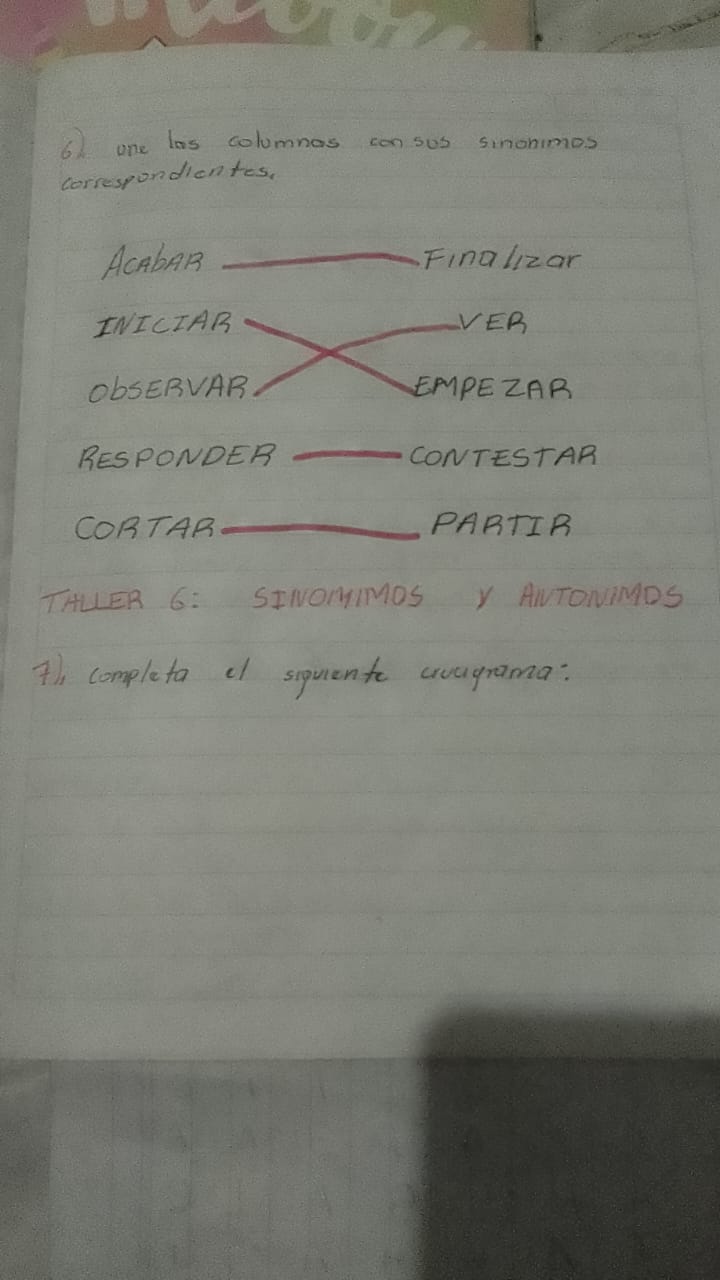 6) une las columnas con sus sinonimos
correspondientes.
ACAbAR Finalizar
INICIAR VER
ObSERVAR EMPEZAR
RESPONDER CONTESTAR
CORTAR PARTIR
TALLER 6: SINOMIMOS Y ANTONIMOS
7). completa el siguiente crucigrama: